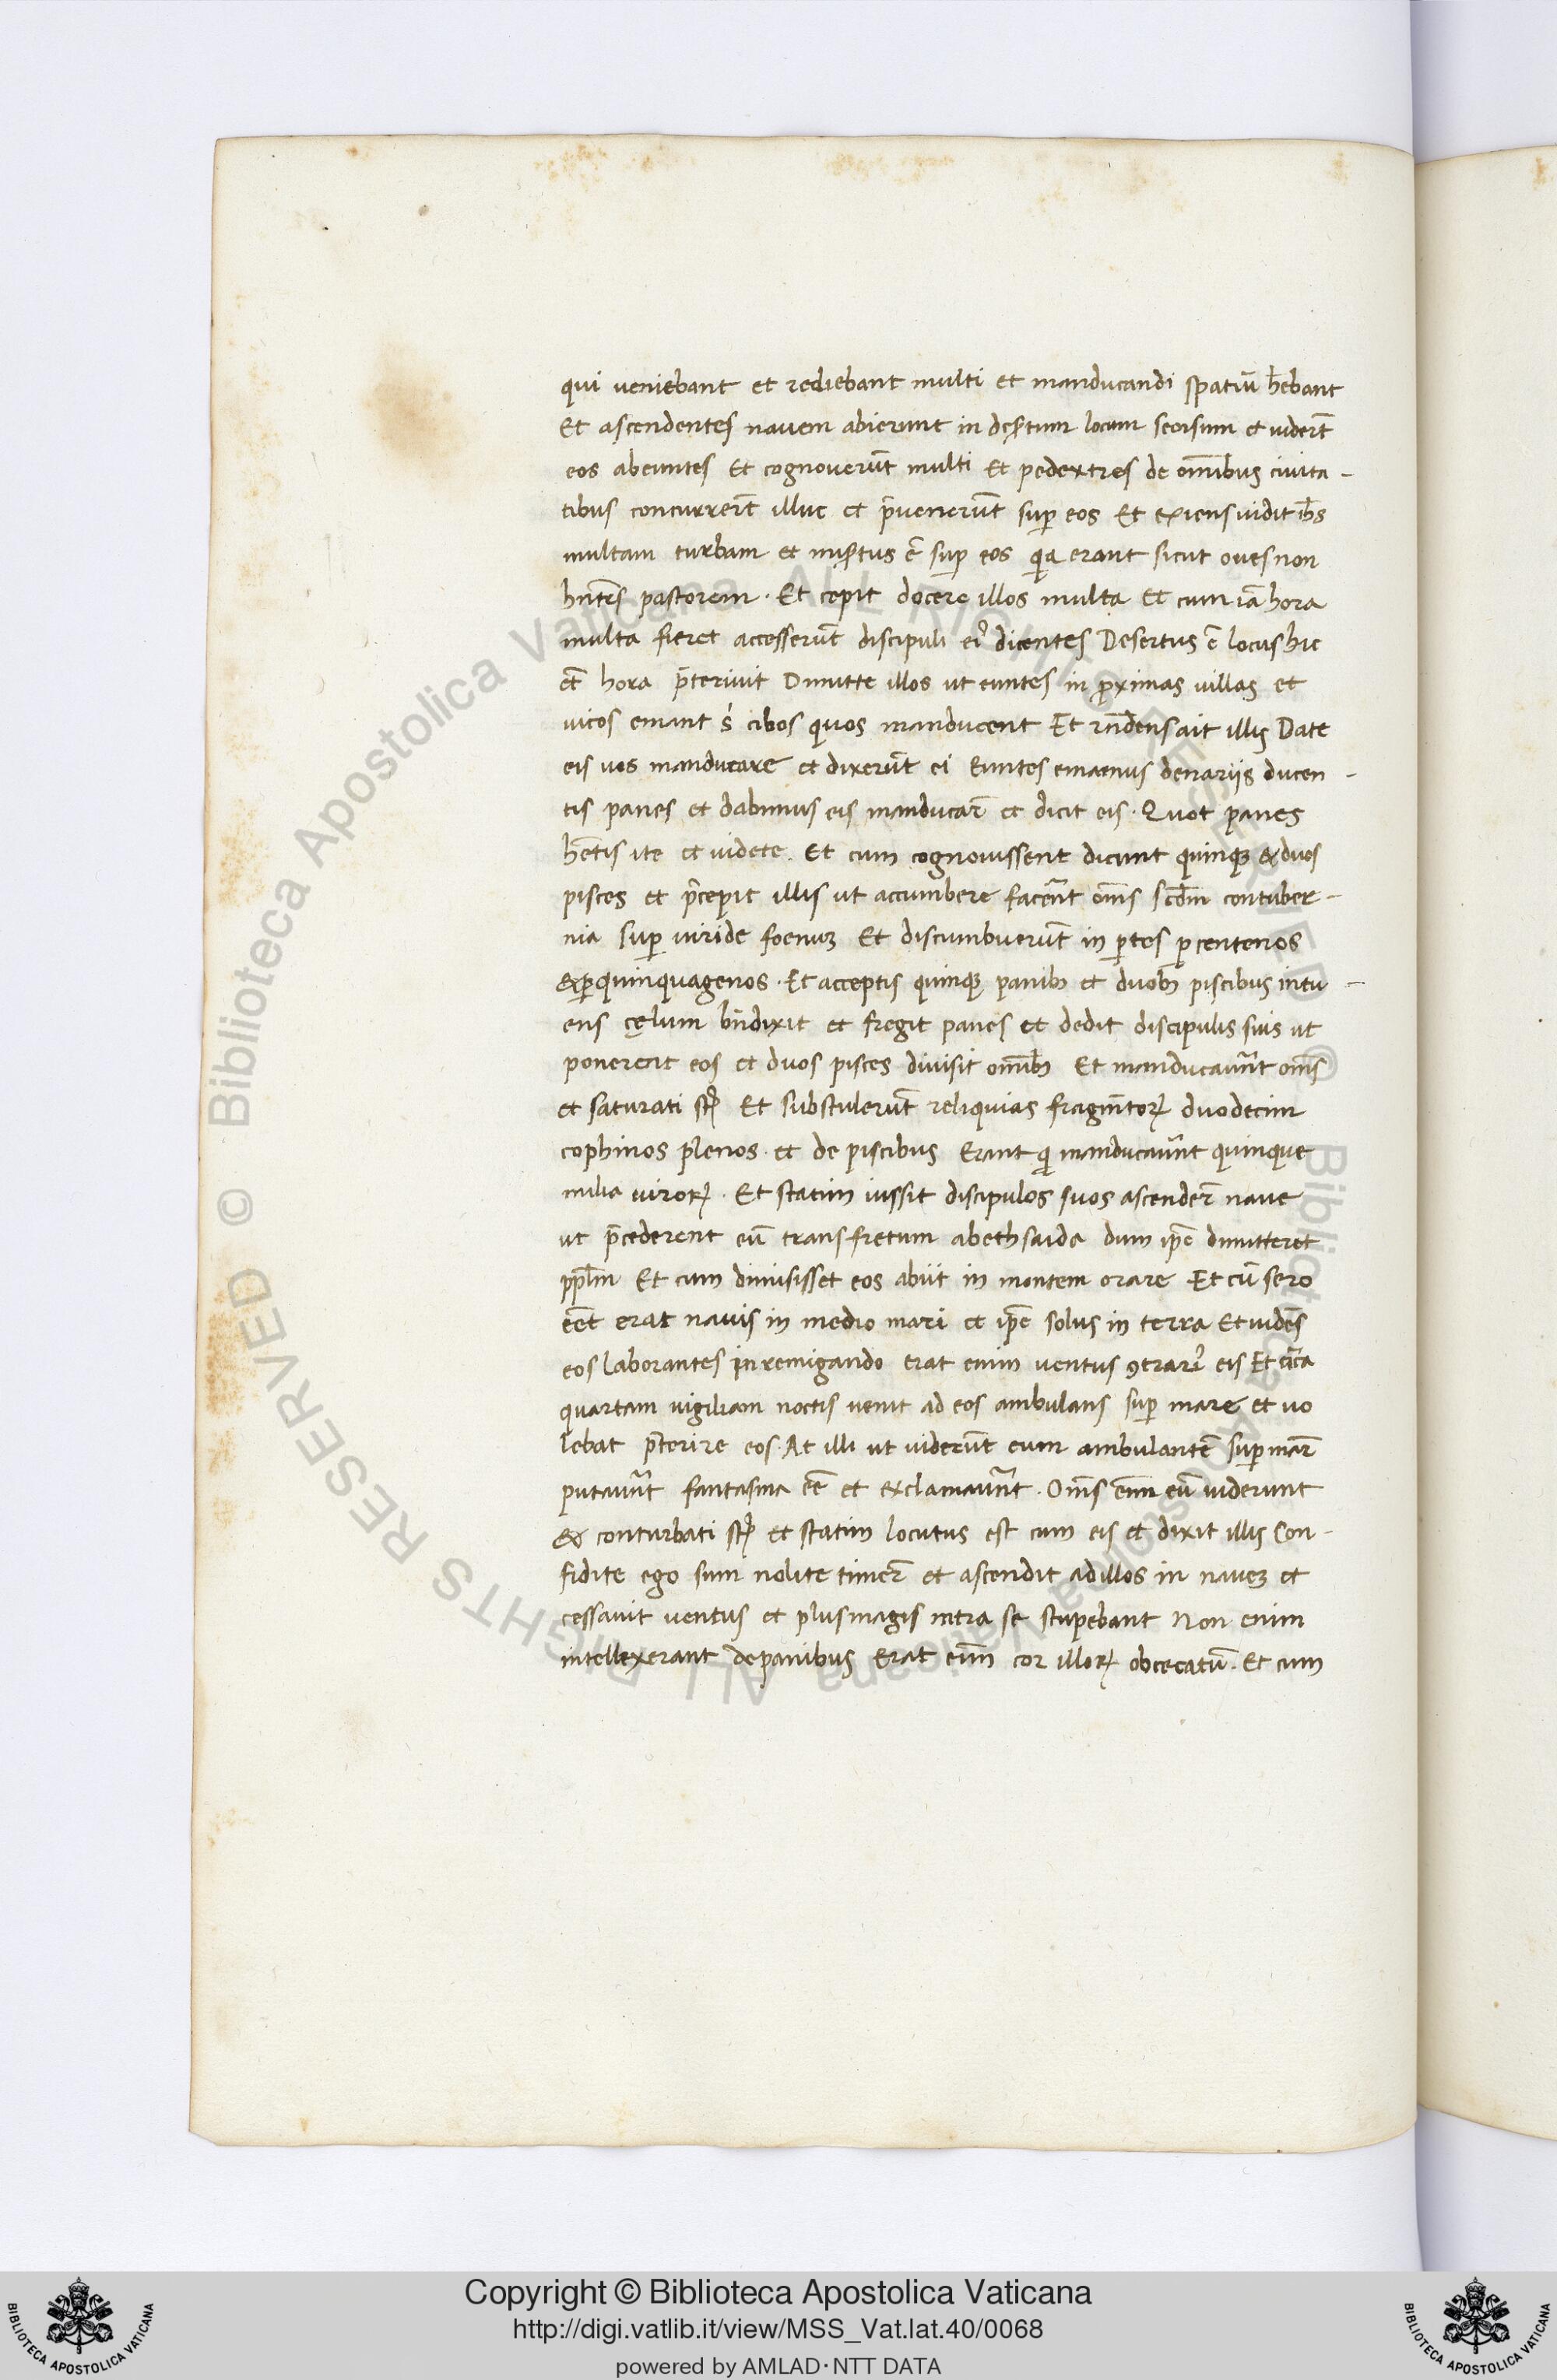 qui veniebant et rediebant multi et manducandi spatiū h̄ebant
Et ascendentes navem abierunt in deſ̄tum locum seorsum et viderūt
eos abeuntes Et cognoverūt multi Et pedextres de om̄ibus civita-
tibus concurrerūt illuc et p̄venerūt suꝑ eos Et exiens vidit ih̄s
multam turbam et mis̄tus ē suꝑ eos quia erant sicut oves non
hn̄tes pastorem · Et cepit docere illos multa Et cum iā hora
multa fieret accesserūt discipuli ei⁹ dicentes Desertus ē locus hic
et hora p̄terivit Dimitte illos ut euntes in ꝓximas villas et
vicos emant s̄ cibos quos manducent Et rn̄dens ait illis Date
eis vos manducare et dixerūt ei Euntes emamus denariis ducen-
tis panes et dabimus eis manducar̄ et dicit eis · Quot panes
h̄etis ite et videte. Et cum cognovissent dicunt quinqꝫ & duos
pisces et p̄cepit illis ut accumbere facer̄nt om̄s scd̄m contuber-
nia suꝑ viride foenuꝫ Et discumbuerūt in ꝑtes ꝑ centenos
& ꝑ quinquagenos · Et acceptis quinqꝫ panibꝫ et duobꝫ piscibus intu-
ens cęlum bn̄dixit et fregit panes et dedit discipulis suis ut
ponerent eos et duos pisces divisit om̄ibꝫ Et manducaver̄nt om̄s
et saturati st̄ Et substulerūt reliquias fragm̄torꝝ duodecim
cophinos plenos · et de piscibus Erant qui manducaver̄nt quinque
milia virorꝝ · Et statim iussit discipulos suos ascender̄ nave
ut p̄cederent eū trans fretum a bethsaida dum ip̄e dimitteret
ppl̄m Et cum dimisisset eos abiit in montem orare Et cū sero
eēt erat navis in medio mari et ip̄e solus in terra Et vidēs
eos laborantes in remigando erat enim ventus ꝯtrari⁹ eis Et circa
quartam vigiliam noctis venit ad eos ambulans suꝑ mare et vo
lebat p̄terire eos · At illi ut viderūt eum ambulantē suꝑ mar̄
putaver̄nt fantasma eē et exclamaver̄nt · Om̄s eīm eū viderunt
& conturbati st̄ et statim locutus est cum eis et dixit illis Con-
fidite ego sum nolite timer̄ et ascendit ad illos in naveꝫ et
cessavit ventus et plus magis intra se stupebant Non enim
intellexerant de panibus Erat eīm cor illorꝝ obcecatū. Et cum
Copyright © Biblioteca Apostolica Vaticana
http://digi.vatlib.it/view/MSS_Vat.lat.40/0068
powered by AMLAD·NTT DATA
BIBLIOTECA APOSTOLICA VATICANA
BIBLIOTECA APOSTOLICA VATICANA
© Biblioteca Apostolica Vaticana ALL RIGHTS RESERVED
© Biblioteca Apostolica Vaticana ALL RIGHTS RESERVED